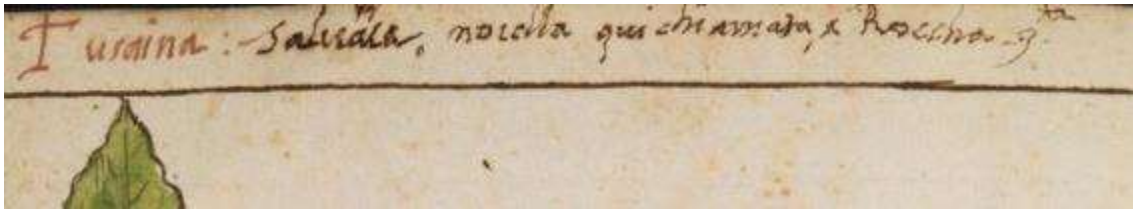 Turaina: saluatica, nouella qui chiamata, a Rocena. 3.ta